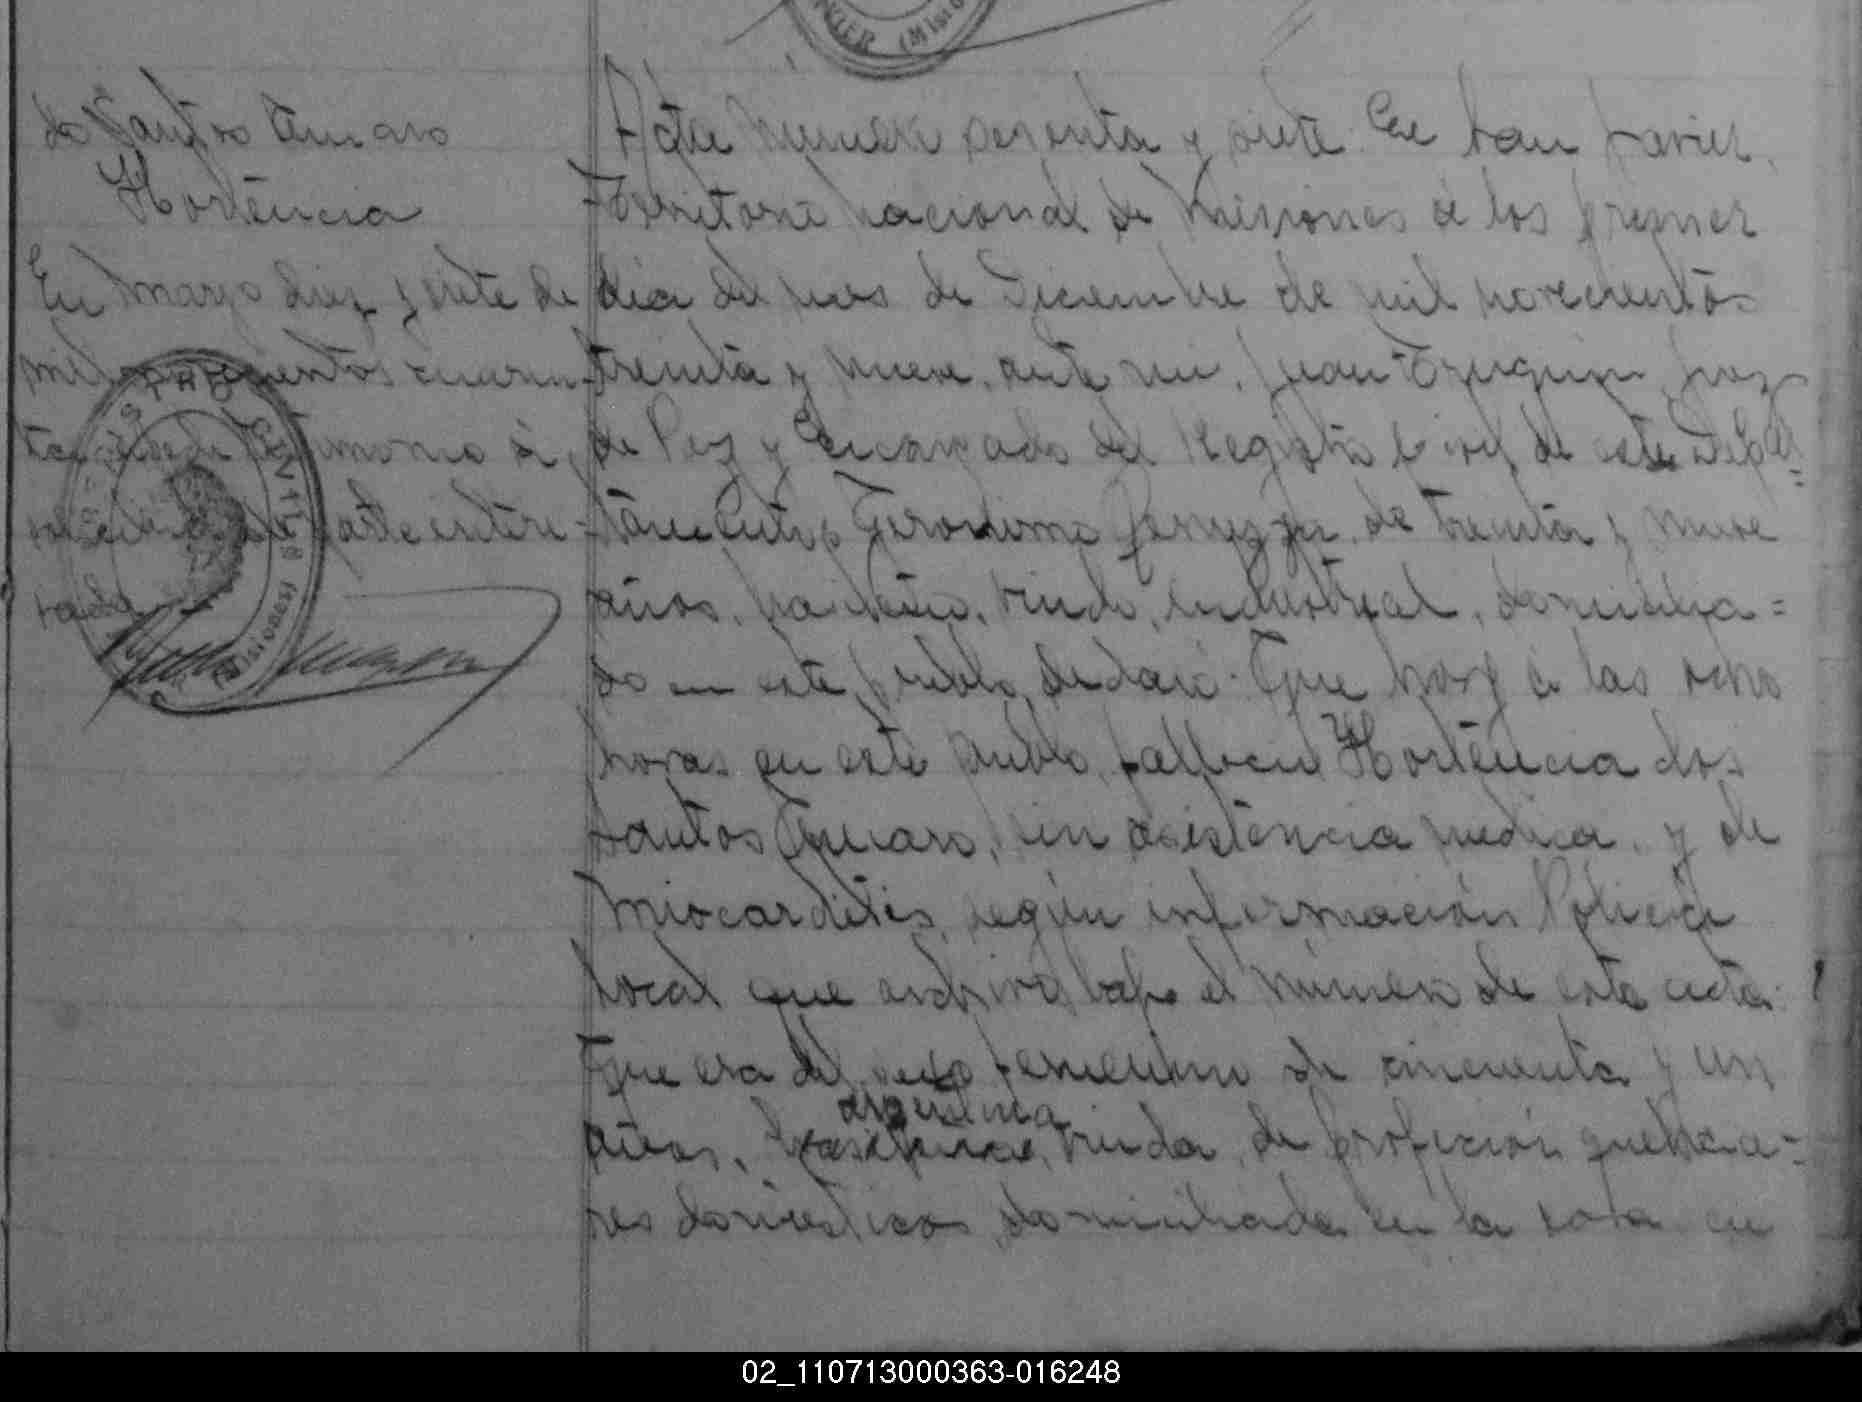 do Santos Amaro
Hortencia
En mayo diez y siete de
mil novecientos cuaren-
ta
parte intere-
sada
REGISTRO CIVIL
(Misiones)
Acta número sesenta y siete. En San Javier,
Territorio Nacional de Misiones á los primer
dia del mes de Diciembre de mil novecientos
treinta y nueve, ante mi, Juan Juez
de Paz y Encargado del Registro Civil de este Depar=
Geronimo de treinta y nueve
años, viudo, industrial, domicilia=
do en este pueblo declaró: Que hoy á las ocho
horas en este pueblo, falleció Hortencia dos
Santos Amaro, sin asistencia medica, y de
Miocarditis, según información Policia
local que archivo bajo el número de esta acta:
Que era del sexo femenino de cincuenta y un
argentina
años, brasilera, viuda, de profición quehace=
res domésticos, domiciliada en la casa en
02_110713000363-016248